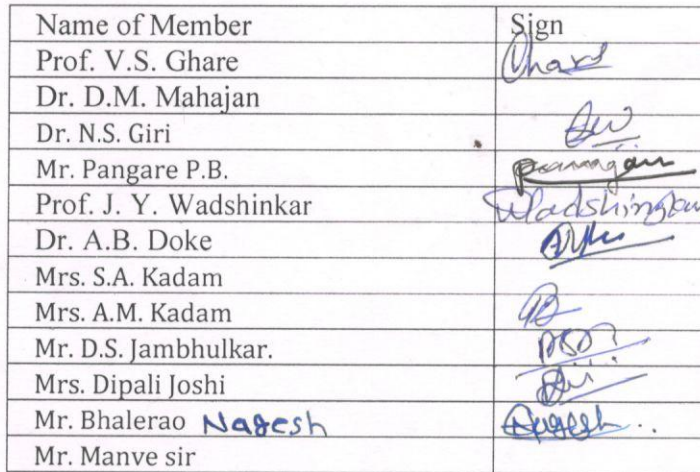 Name of Member Sign
Prof. V.S. Ghare
Dr. D.M. Mahajan
Dr. N.S. Giri
Mr. Pangare P.B.
Prof. J. Y. Wadshinkar Wadshinkar
Dr. A.B. Doke
Mrs. S.A. Kadam
Mrs. A.M. Kadam
Mr. D.S. Jambhulkar.
Mrs. Dipali Joshi
Mr. Bhalerao Nagesh
Mr. Manve sir